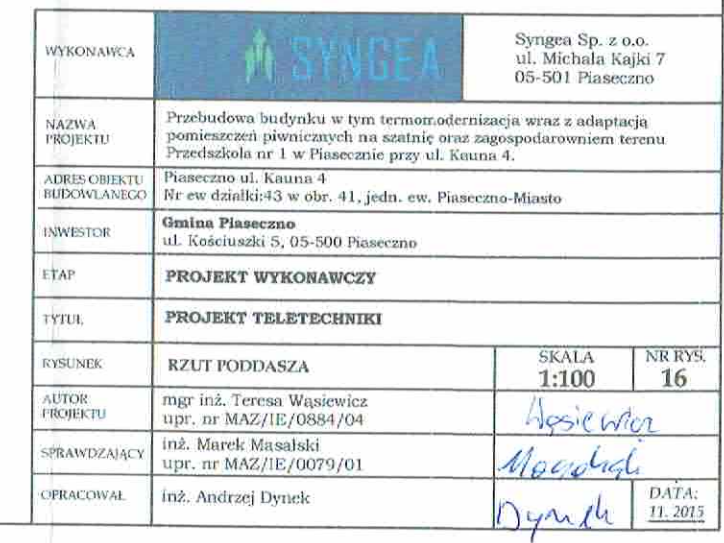 WYKONAWCA
SYNGEA
Syngea Sp. z o.o.
ul. Michala Kajki 7
05-501 Piaseczno
NAZWA
PROJEKTU
Przebudowa budynku w tym termomodernizacja wraz z adaptacją
pomieszczeń piwnicznych na szatnię oraz zagospodarowniem terenu
Przedszkola nr 1 w Piasecznie przy ul. Kauna 4.
ADRES OBIEKTU
BUDOWLANEGO
Piaseczno ul. Kauna 4
Nr ew działki:43 w obr. 41, jedn. ew. Piaseczno-Miasto
INWESTOR
Gmina Piaseczno
ul. Kościuszki 5, 05-500 Piaseczno
ETAP
PROJEKT WYKONAWCZY
TYTUŁ
PROJEKT TELETECHNIKI
RYSUNEK
RZUT PODDASZA
SKALA
1:100
NR RYS.
16
AUTOR
PROJEKTU
mgr inż. Teresa Wąsiewicz
upr. nr MAZ/IE/0884/04
Wąsiewicz
SPRAWDZAJĄCY
inż. Marek Masalski
upr. nr MAZ/IE/0079/01
OPRACOWAŁ
inż. Andrzej Dynek
Dynek
DATA:
11. 2015